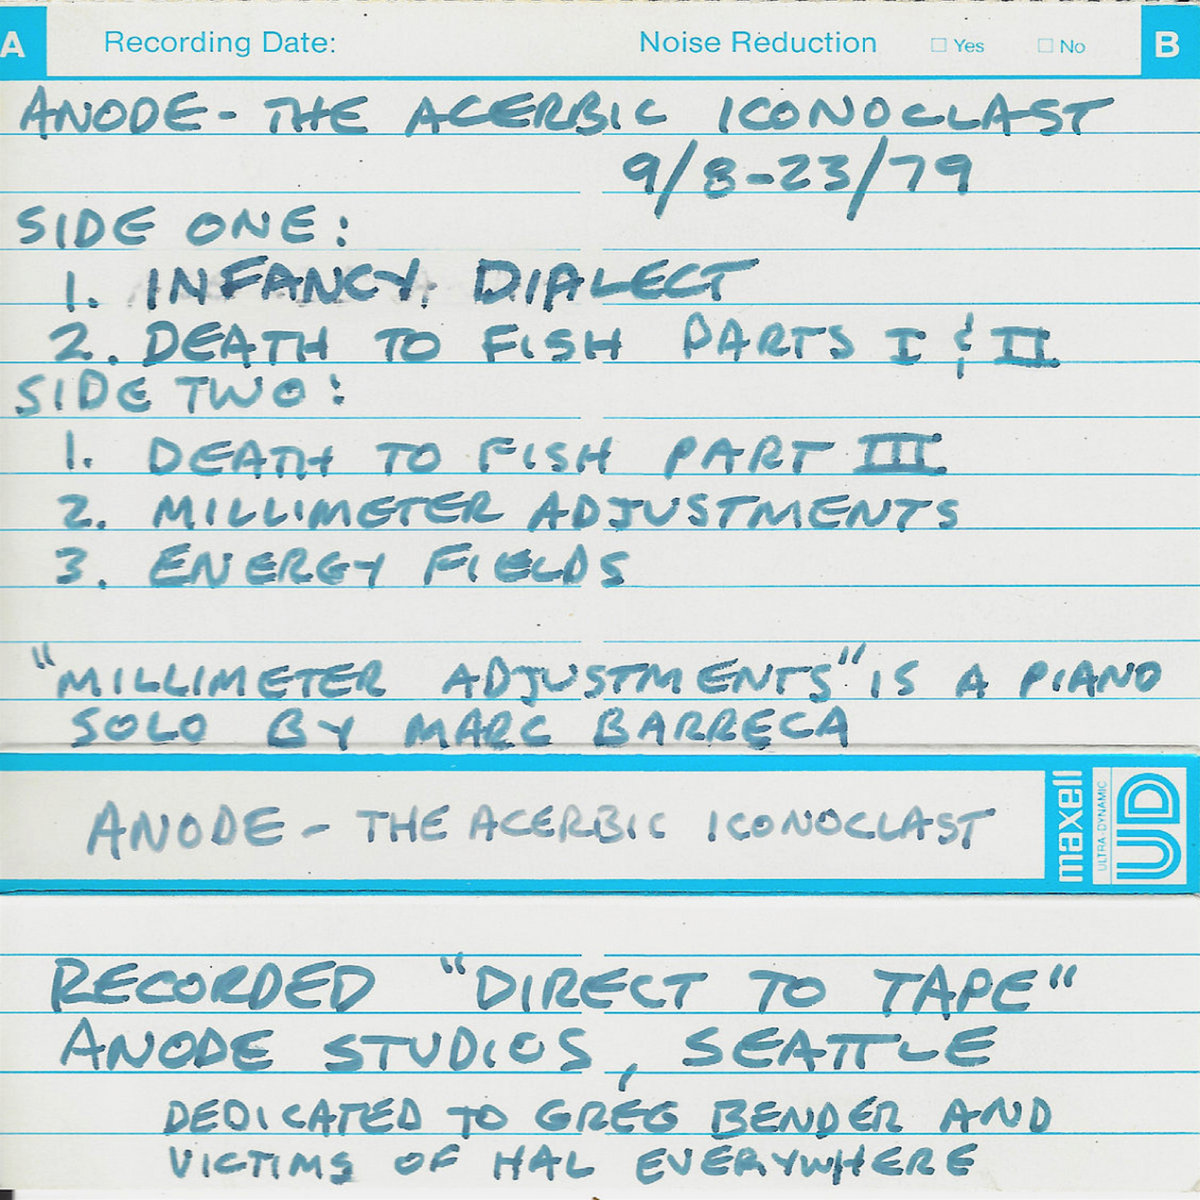 A Recording Date: Noise Reduction Yes No B
ANODE - THE ACERBIC ICONOCLAST
9/8-23/79
SIDE ONE:
1. INFANCY DIALECT
2. DEATH TO FISH PARTS I & II
SIDE TWO:
1. DEATH TO FISH PART III
2. MILLIMETER ADJUSTMENTS
3. ENERGY FIELDS
"MILLIMETER ADJUSTMENTS" IS A PIANO
SOLO BY MARC BARRECA
ANODE - THE ACERBIC ICONOCLAST
maxell
ULTRA-DYNAMIC
UD
RECORDED "DIRECT TO TAPE"
ANODE STUDIOS, SEATTLE
DEDICATED TO GREG BENDER AND
VICTIMS OF HAL EVERYWHERE